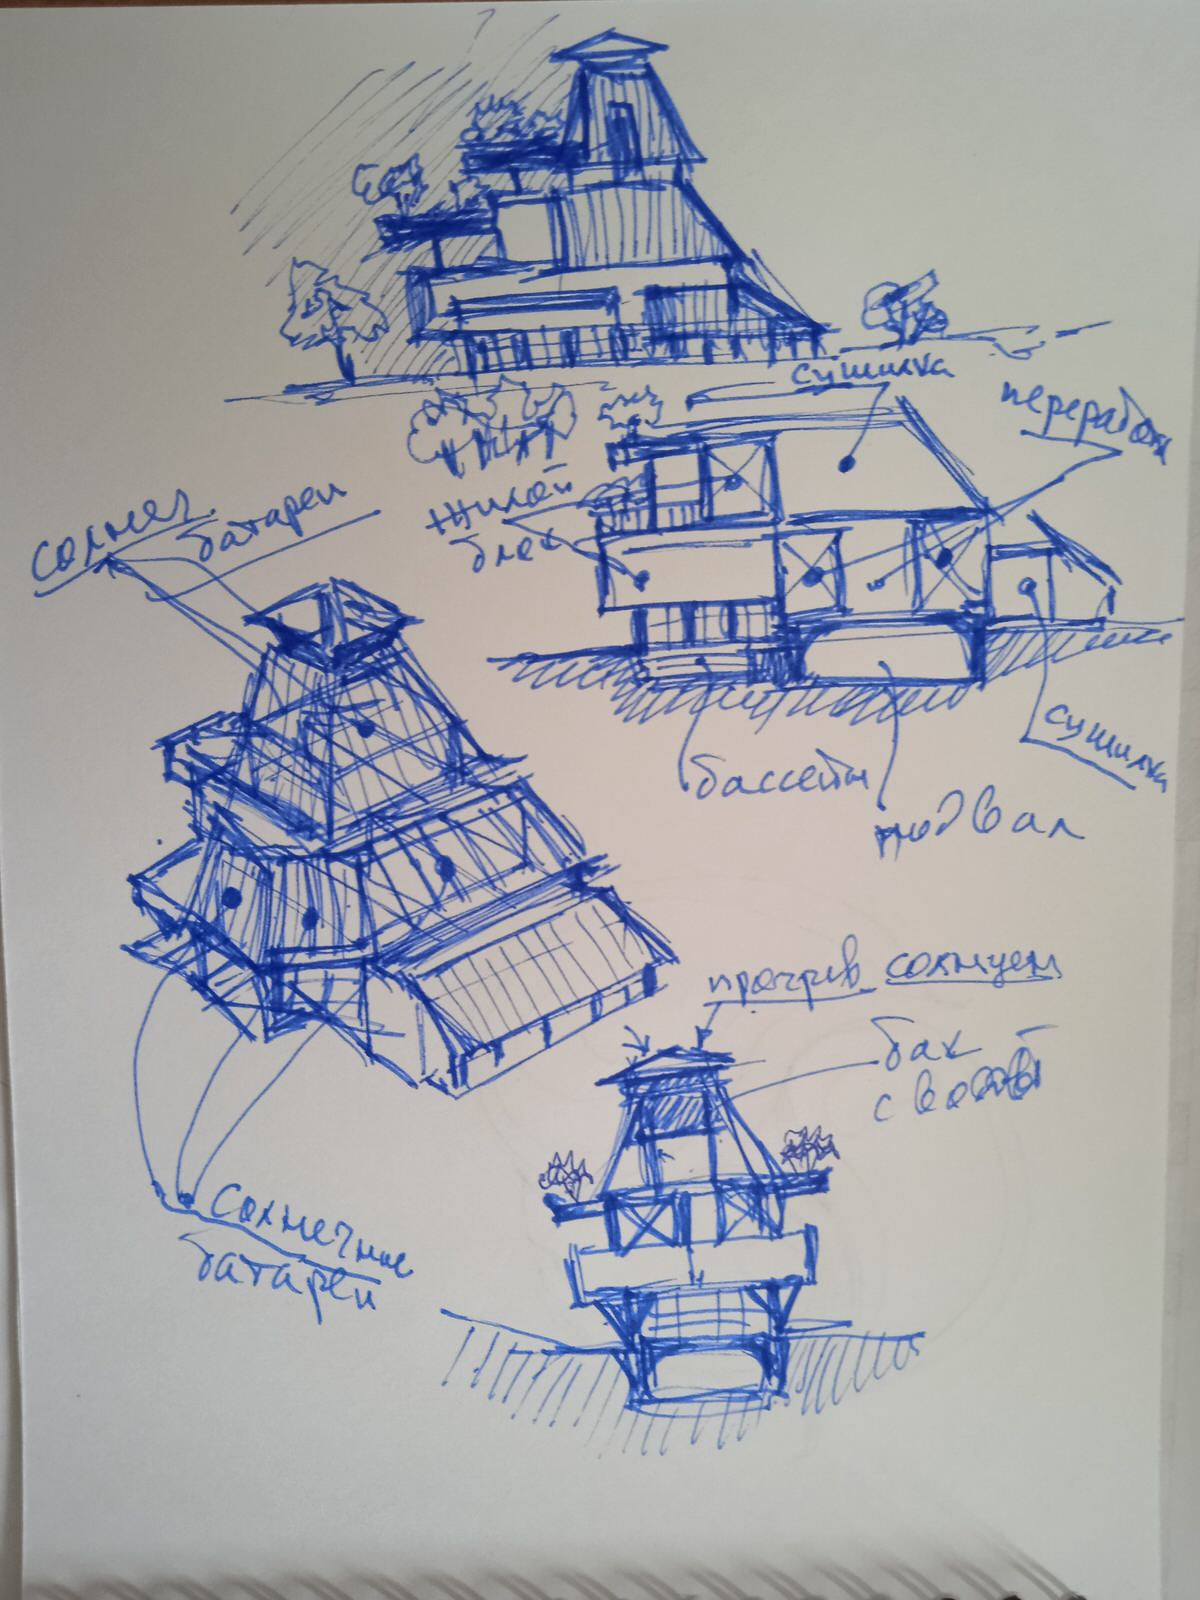 сушилка
переработка
солнеч.
батареи
жилой
блок
сушилка
бассейн
подвал
прогрев солнцем
бак
с водой
солнечные
батареи